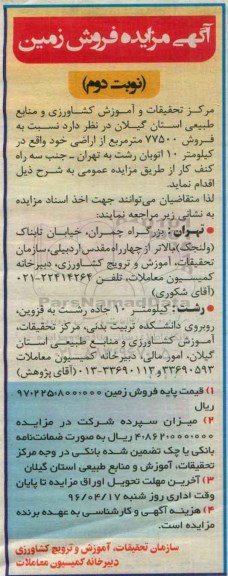 آگهی مزایده فروش زمین
(نوبت دوم)
مرکز تحقیقات و آموزش کشاورزی و منابع
طبیعی استان گیلان در نظر دارد نسبت به
فروش ۷۷۵۰۰ مترمربع از اراضی خود واقع در
کیلومتر ۱۰ اتوبان رشت به تهران ـ جنب سه راه
کنف کار از طریق مزایده عمومی به شرح ذیل
اقدام نماید.
لذا متقاضیان می‌توانند جهت اخذ اسناد مزایده
به نشانی زیر مراجعه نمایند:
● تهران: بزرگراه چمران، خیابان تابناک
(ولنجک)بالاتر از چهارراه مقدس اردبیلی،سازمان
تحقیقات، آموزش و ترویج کشاورزی، دبیرخانه
کمیسیون معاملات، تلفن ۲۲۴۱۴۲۶۴-۰۲۱
(آقای شکوری)
● رشت: کیلومتر ۱۰ جاده رشت به قزوین،
روبروی دانشکده تربیت بدنی، مرکز تحقیقات،
آموزش کشاورزی و منابع طبیعی استان
گیلان، امور مالی، دبیرخانه کمیسیون معاملات
۳۳۶۹۰۵۹۳ و ۳۳۶۹۰۱۱۳-۰۱۳ (آقای پژوهش)
۱) قیمت پایه فروش زمین ۹۷/۲۲۵/۸۰۰/۰۰۰
ریال
۲) میزان سپرده شرکت در مزایده
۴/۰۸۶/۲۰۰/۰۰۰ ریال به صورت ضمانت‌نامه
بانکی یا چک تضمین شده بانکی در وجه مرکز
تحقیقات، آموزش و منابع طبیعی استان گیلان
۳) آخرین مهلت تحویل اوراق مزایده تا پایان
وقت اداری روز شنبه ۹۶/۰۴/۱۷
۴) هزینه آگهی و کارشناسی به عهده برنده
مزایده است.
سازمان تحقیقات، آموزش و ترویج کشاورزی
دبیرخانه کمیسیون معاملات